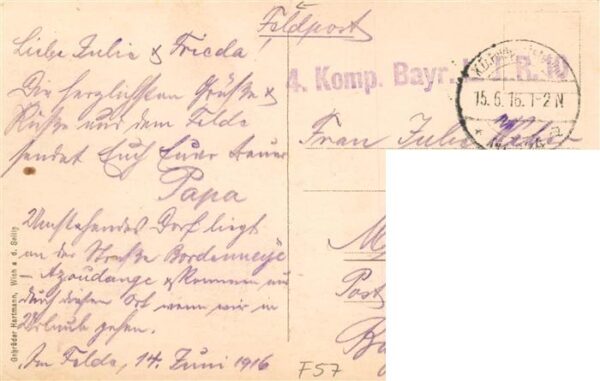 Feldpost
Liebe Julie & Frieda
Die herzlichsten Grüße &
Küße aus dem Felde
sendet Euch Euer treuer
Papa
Umstehendes Dorf liegt
an der Straße Bordenneye
- Azoudange & kommen wir
durch diesen Ort wenn wir in
Urlaub gehen.
Im Felde, 14. Juni 1916
4. Komp. Bayr. R. 10
15.6.16. 1-2 N
Frau Julie
M
Post
Ba
F57
Gebrüder Hartmann, Wich a. d. Seille